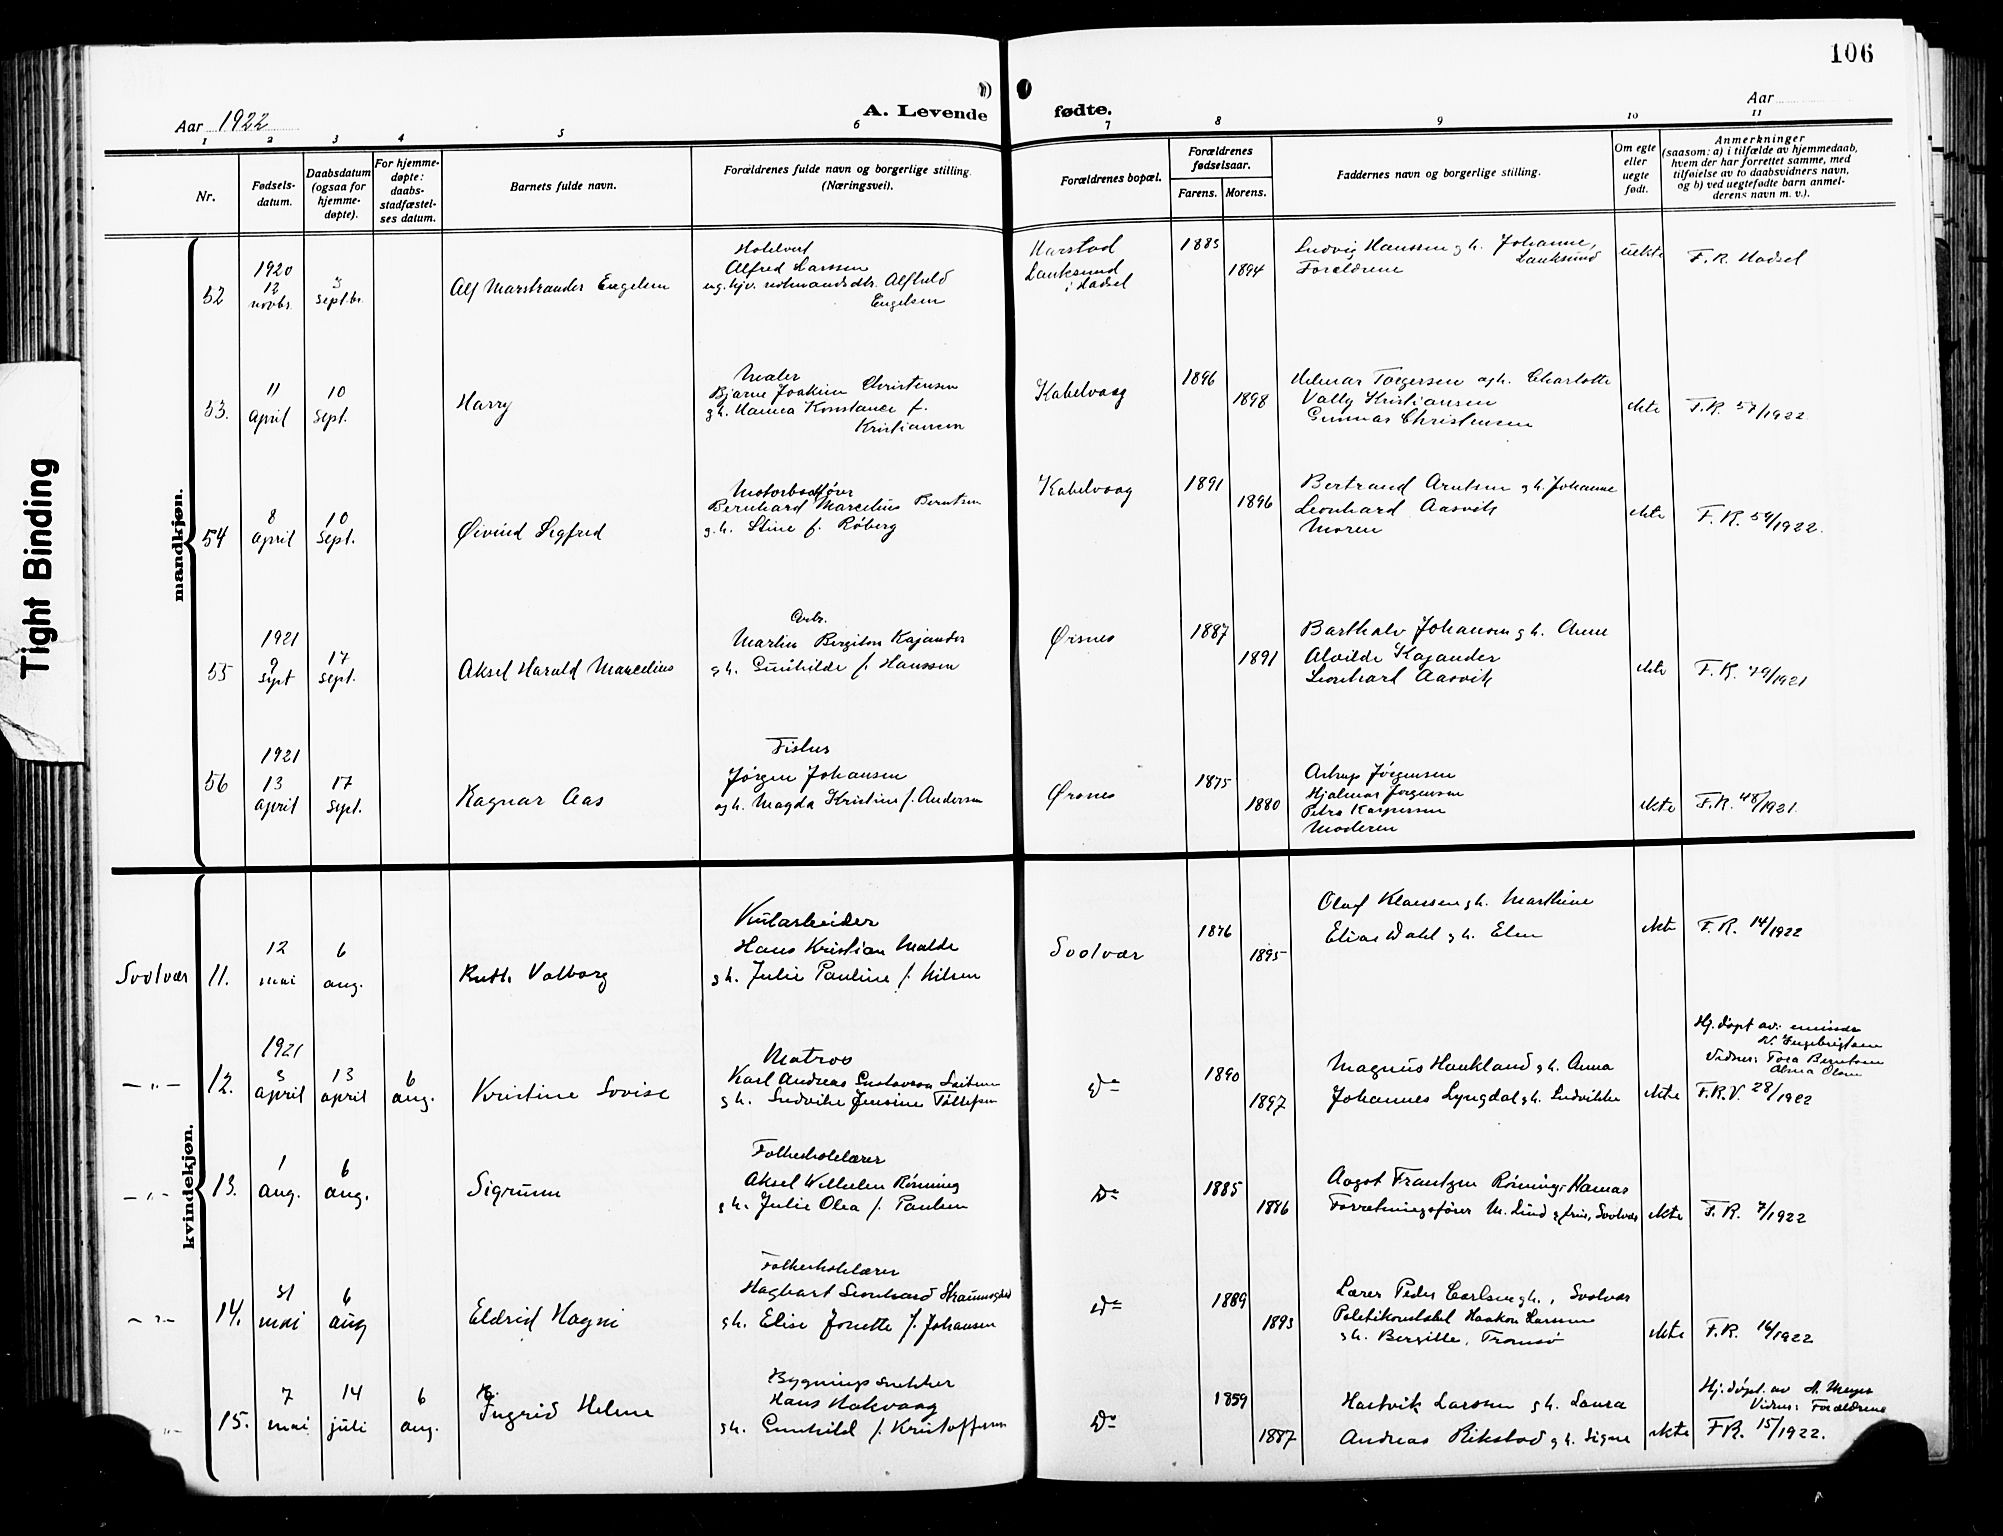 106
Aar 1922
A. Levende
fødte.
Aar
1 2 3 4 5 6 7 8 9 10 11
Nr.
Fødsels-
datum.
Daabsdatum
(ogsaa for
hjemme-
døpte).
For hjemme-
døpte:
daabs-
stadfæstel-
ses datum.
Barnets fulde navn.
Forældrenes fulde navn og borgerlige stilling.
(Næringsvei).
Forældrenes bopæl.
Forældrenes
fødselsaar.
Farens. Morens.
Faddernes navn og borgerlige stilling.
Om egte
eller
uegte
født.
Anmerkninger
(saasom: a) i tilfælde av hjemmedaab,
hvem der har forrettet samme, med
tilføielse av to daabsvidners navn,
og b) ved uegtefødte barn anmel-
derens navn m. v.).
Tight Binding
mandkjøn.
52
1920
12
novbr.
3
sept.br.
Alf Marstrander Engelsen
Hotelvert
Alfred Larssen
ug. hjv. nedmandsdtr. Alfhild
Engelsen
Harstad
Lanksund
i Hadsel
1885
1894
Ludvig Hanssen g h. Johanne,
Lanksund
Forældrene
uekte
F. R. Hadsel
53.
11
April
10
Sept.
Harry
Maler
Bjarne Joakim Christensen
g h. Hanna Konstance f.
Kristiansen
Kabelvaag
1896
1898
Hilmar Torgersen og h. Charlotte
Vally Kristiansen
Gunnar Christensen
ekte
F. R. 57/1922
54
8
April
10
Sept.
Øivind Sigfred
Motorbaatfører
Bernhard Marcelius Berntsen
g. h. Stine f. Røberg
Kabelvaag
1891
1896
Bertrand Arntsen g h. Johanne
Leonhard Aasvik
Moren
ekte
F. R. 59/1922.
55
1921
9
Sept
17
Sept.
Aksel Harald Marcelius
Arb.
Martin Bergiton Kajander
g h. Gunhilde f. Hanssen
Ørsnes
1887
1891
Barthalv Johansen g h. Anne
Alvilde Kajander
Leonhard Aasvik
ekte
F. R. 79/1921
56
1921
13
April
17
Sept.
Ragnar Aas
Fisker
Jørgen Johansen
og h. Magda Kristine f. Andersen
Ørsnes
1875
1880
Astrup Jørgensen
Hjalmar Jørgensen
Petra Kaspersen
Moderen
ekte
F.R. 48/1921.
kvindekjøn.
Svolvær
11.
12
mai
6
aug.
Ruth Valborg
Kularbeider
Hans Kristian Malde
g h. Julie Pauline f. Nilsen
Svolvær
1876
1895
Olaf Klausen g h. Marthine
Elias Dahl g h. Elen
ekte
F. R. 14/1922
— „ —
12.
1921
3
april
13
april
6
aug.
Kristine Lovise
Matros
Karl Andreas Gustavson
g h. Ludvike Jensine Tollefsen
Do
1890
1897
Magnus Haukland g h. Anna
Johannes Lyngdal g h. Ludvikke
ekte
Hj. døpt av: emissær
N. Engebrigtsen
Vidner: Tora Berntsen
Alma Olsen
F.R.V. 28/1922
— „ —
13.
1
aug.
6
aug.
Sigrunn
Folkeskolelærer
Aksel Wilhelm Rønning
g h. Julie Olea f. Paulsen
Do
1885
1886
Aagot Frantzen Rønning, Hamar
Forretningsfører M. Lind g frue, Svolvær
ekte
F. R. 7/1922
— „ —
14.
31
mai
6
aug
Eldrid Hagni
Folkeskolelærer
Hagbart Leonhard
g h. Elise Jonette f. Johansen
Do
1889
1893
Lærer Peder Carlsen g h., Svolvær
Politikonstabel Haakon Larssen
g h. Bergitte, Tromsø
ekte
F. R. 16/1922
„
15.
7
mai
14
juli
6
aug.
Ingrid Helene
Bygningssnekker
Hans Hakvaag
g h. Gunhild f. Kristoffersen
Do
1859
1887
Hartvik Larssen g h. Laura
Andreas Rikstad g h. Signe
ekte
Hj. døpt. av H. Meyer
Vidner: Forældrene
F.R. 15/1922.